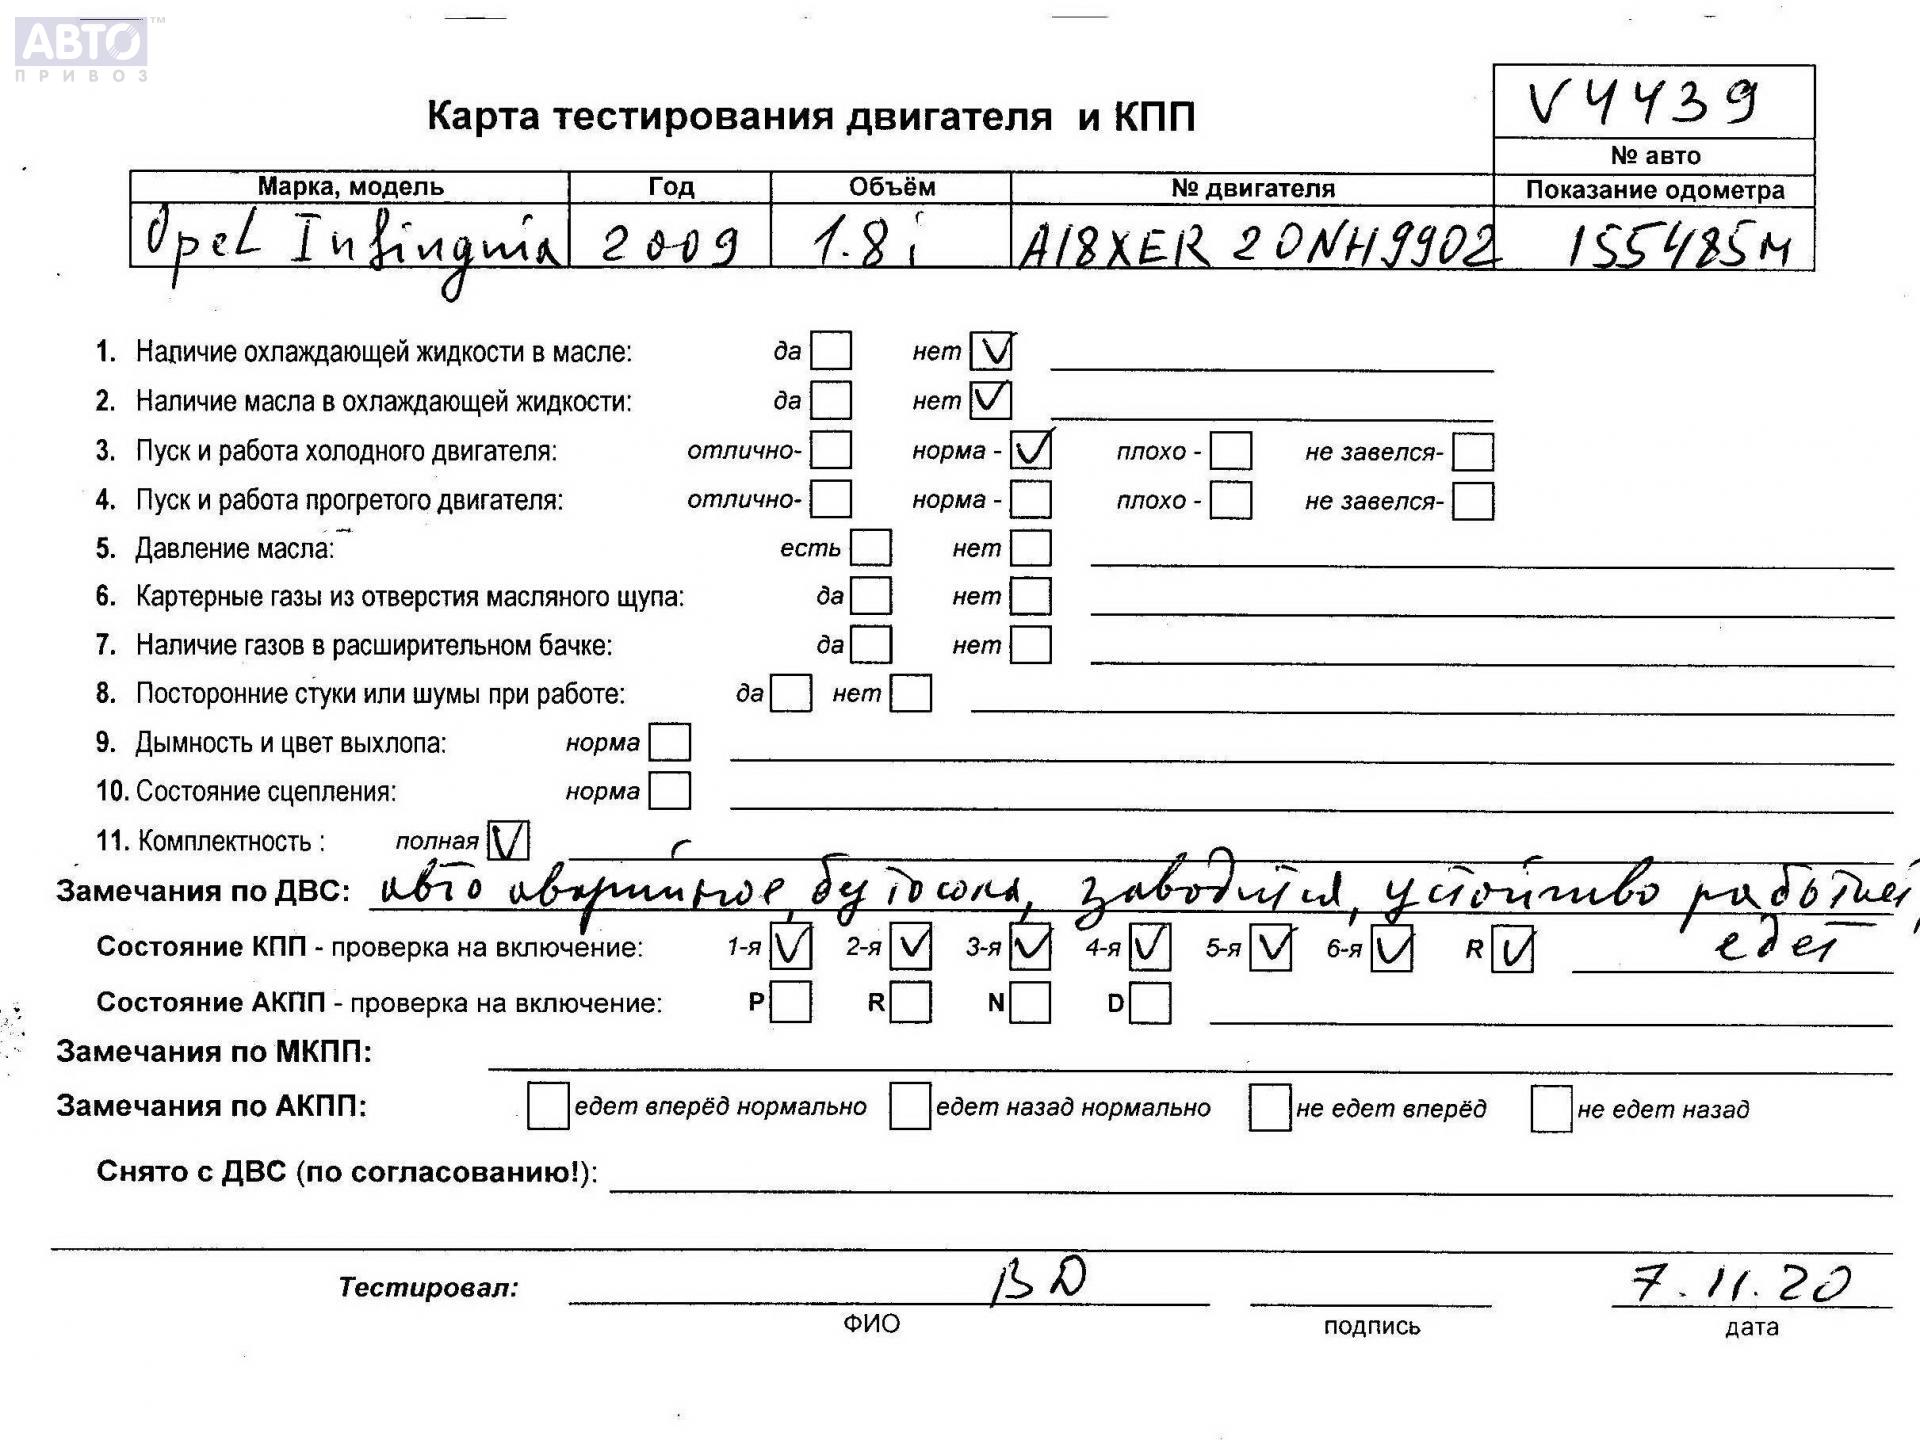 АВТО™
ПРИВОЗ
V4439
Карта тестирования двигателя и КПП
№ авто
Марка, модель Год Объём № двигателя Показание одометра
Opel Insingnia 2009 1.8i A18XER 20NH9902 155485м
1. Наличие охлаждающей жидкости в масле: да нет V
2. Наличие масла в охлаждающей жидкости: да нет V
3. Пуск и работа холодного двигателя: отлично- норма - V плохо - не завелся-
4. Пуск и работа прогретого двигателя: отлично- норма - плохо - не завелся-
5. Давление масла: есть нет
6. Картерные газы из отверстия масляного щупа: да нет
7. Наличие газов в расширительном бачке: да нет
8. Посторонние стуки или шумы при работе: да нет
9. Дымность и цвет выхлопа: норма
10. Состояние сцепления: норма
11. Комплектность : полная V
Замечания по ДВС: авто аварийное, заводится, устойчиво работает,
едет
Состояние КПП - проверка на включение: 1-я V 2-я V 3-я V 4-я V 5-я V 6-я V R V
Состояние АКПП - проверка на включение: P R N D
Замечания по МКПП:
Замечания по АКПП: едет вперёд нормально едет назад нормально не едет вперёд не едет назад
Снято с ДВС (по согласованию!):
Тестировал: ВД 7.11.20
ФИО подпись дата